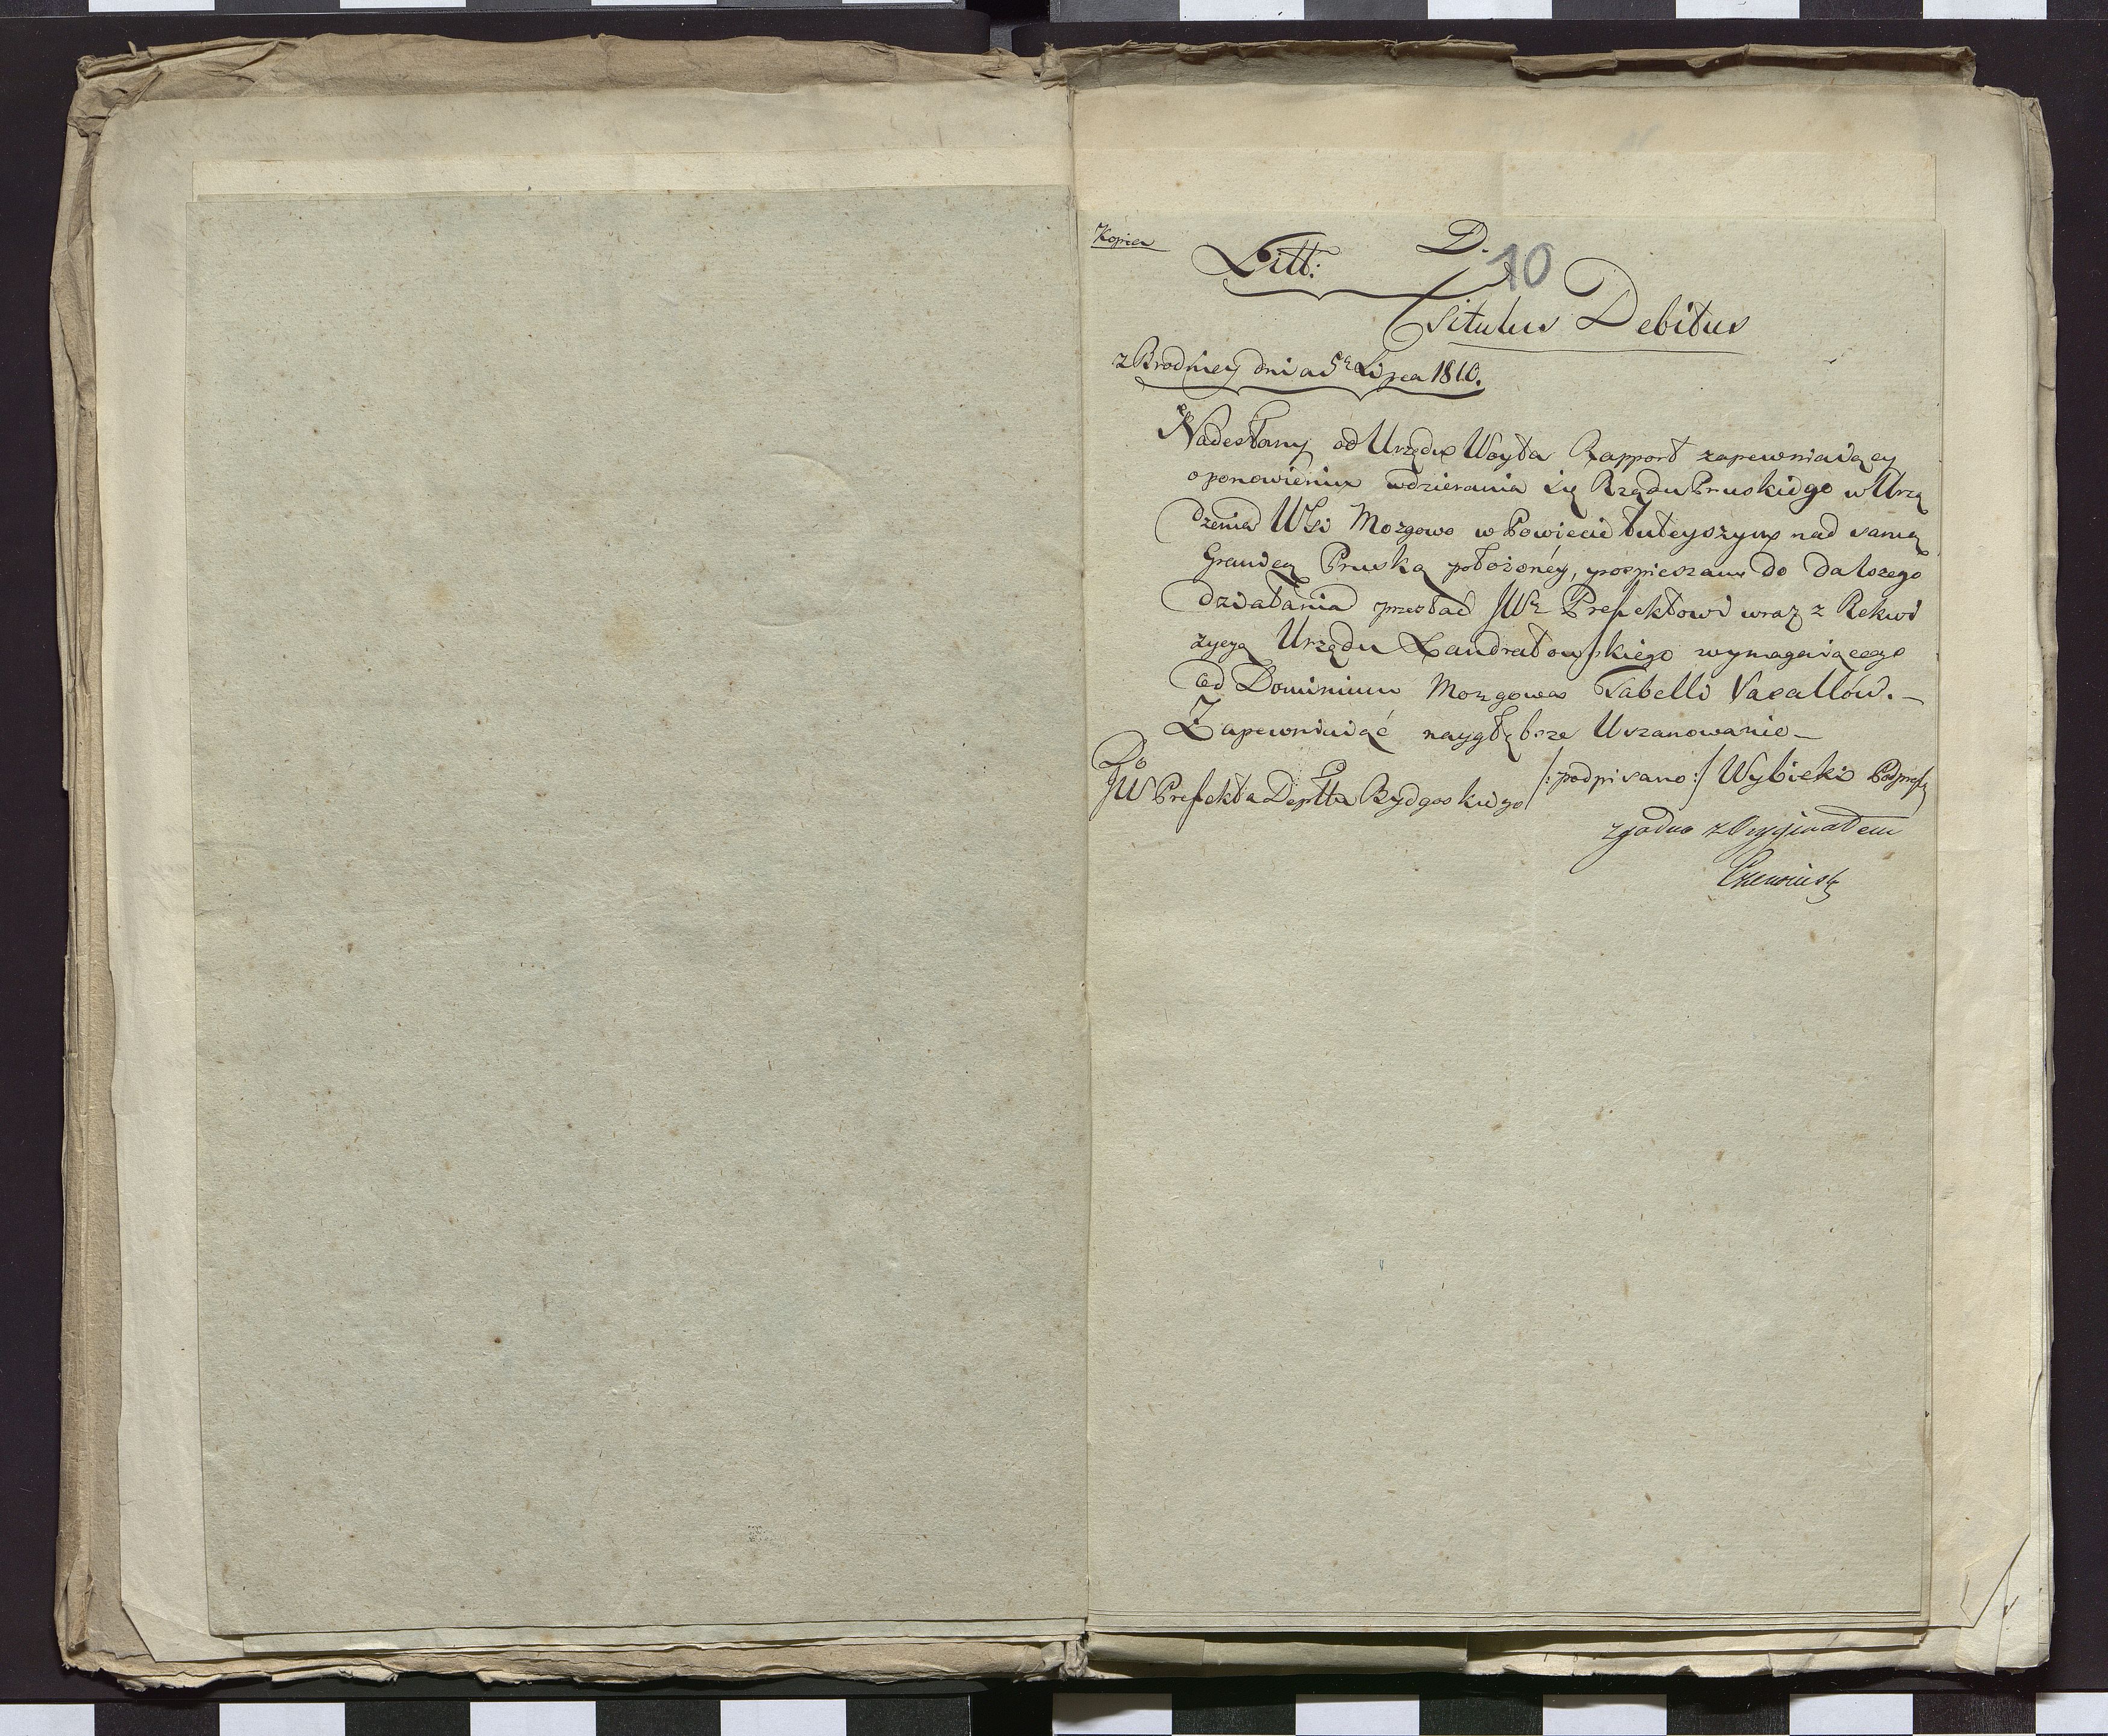 Kopia
Litt: D.
10
Titulus Debitus
z Brodnicy dnia 5go Lipca 1810.
Nadesłany od Urzędu Woyta Rapport zapewniaiący
o ponowieniu wdzierania się Rządu Pruskiego w Urzą
dzenia Wsi Mozgowo w Powiecie tuteyszym nad samą
Granicą Pruską położonéy, pospieszam do dalszego
działania przesłać JWu Prefektowi wraz z Rekwi
zycyą Urzędu Landratowskiego wymagaiącego
od Dominium Mozgowa Tabelli Vasallów. –
Zapewniaiąć naygłębsze Uszanowanie –
Do
JW Prefekta Depttu Bydgoskiego /: podpisano :/ Wybicki Podpref
zgodno z Oryginałem